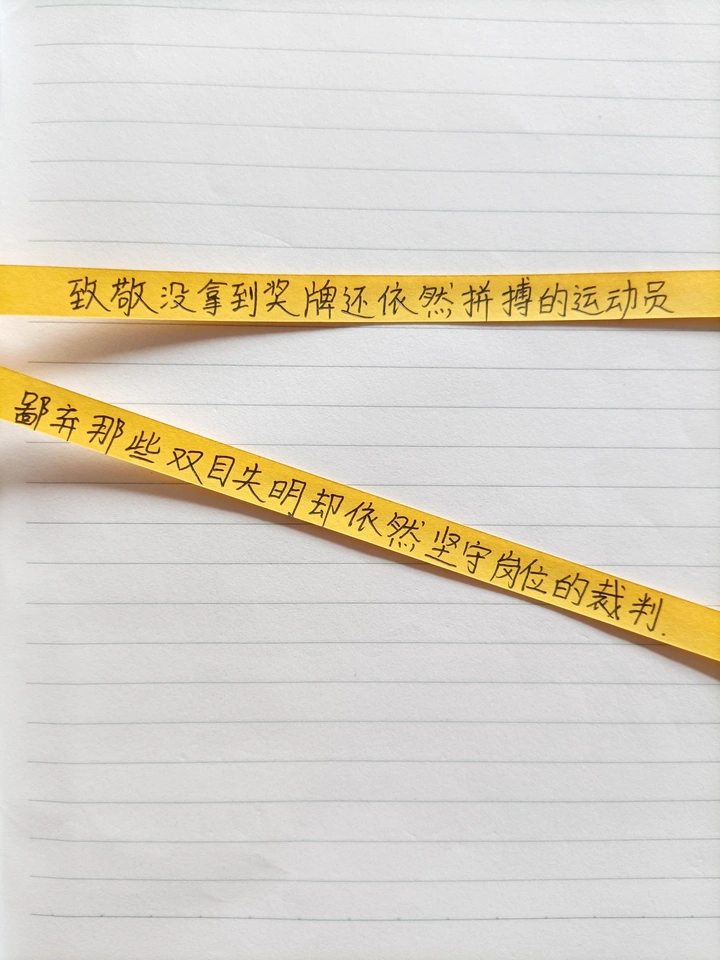 致敬没拿到奖牌还依然拼搏的运动员
鄙弃那些双目失明却依然坚守岗位的裁判.